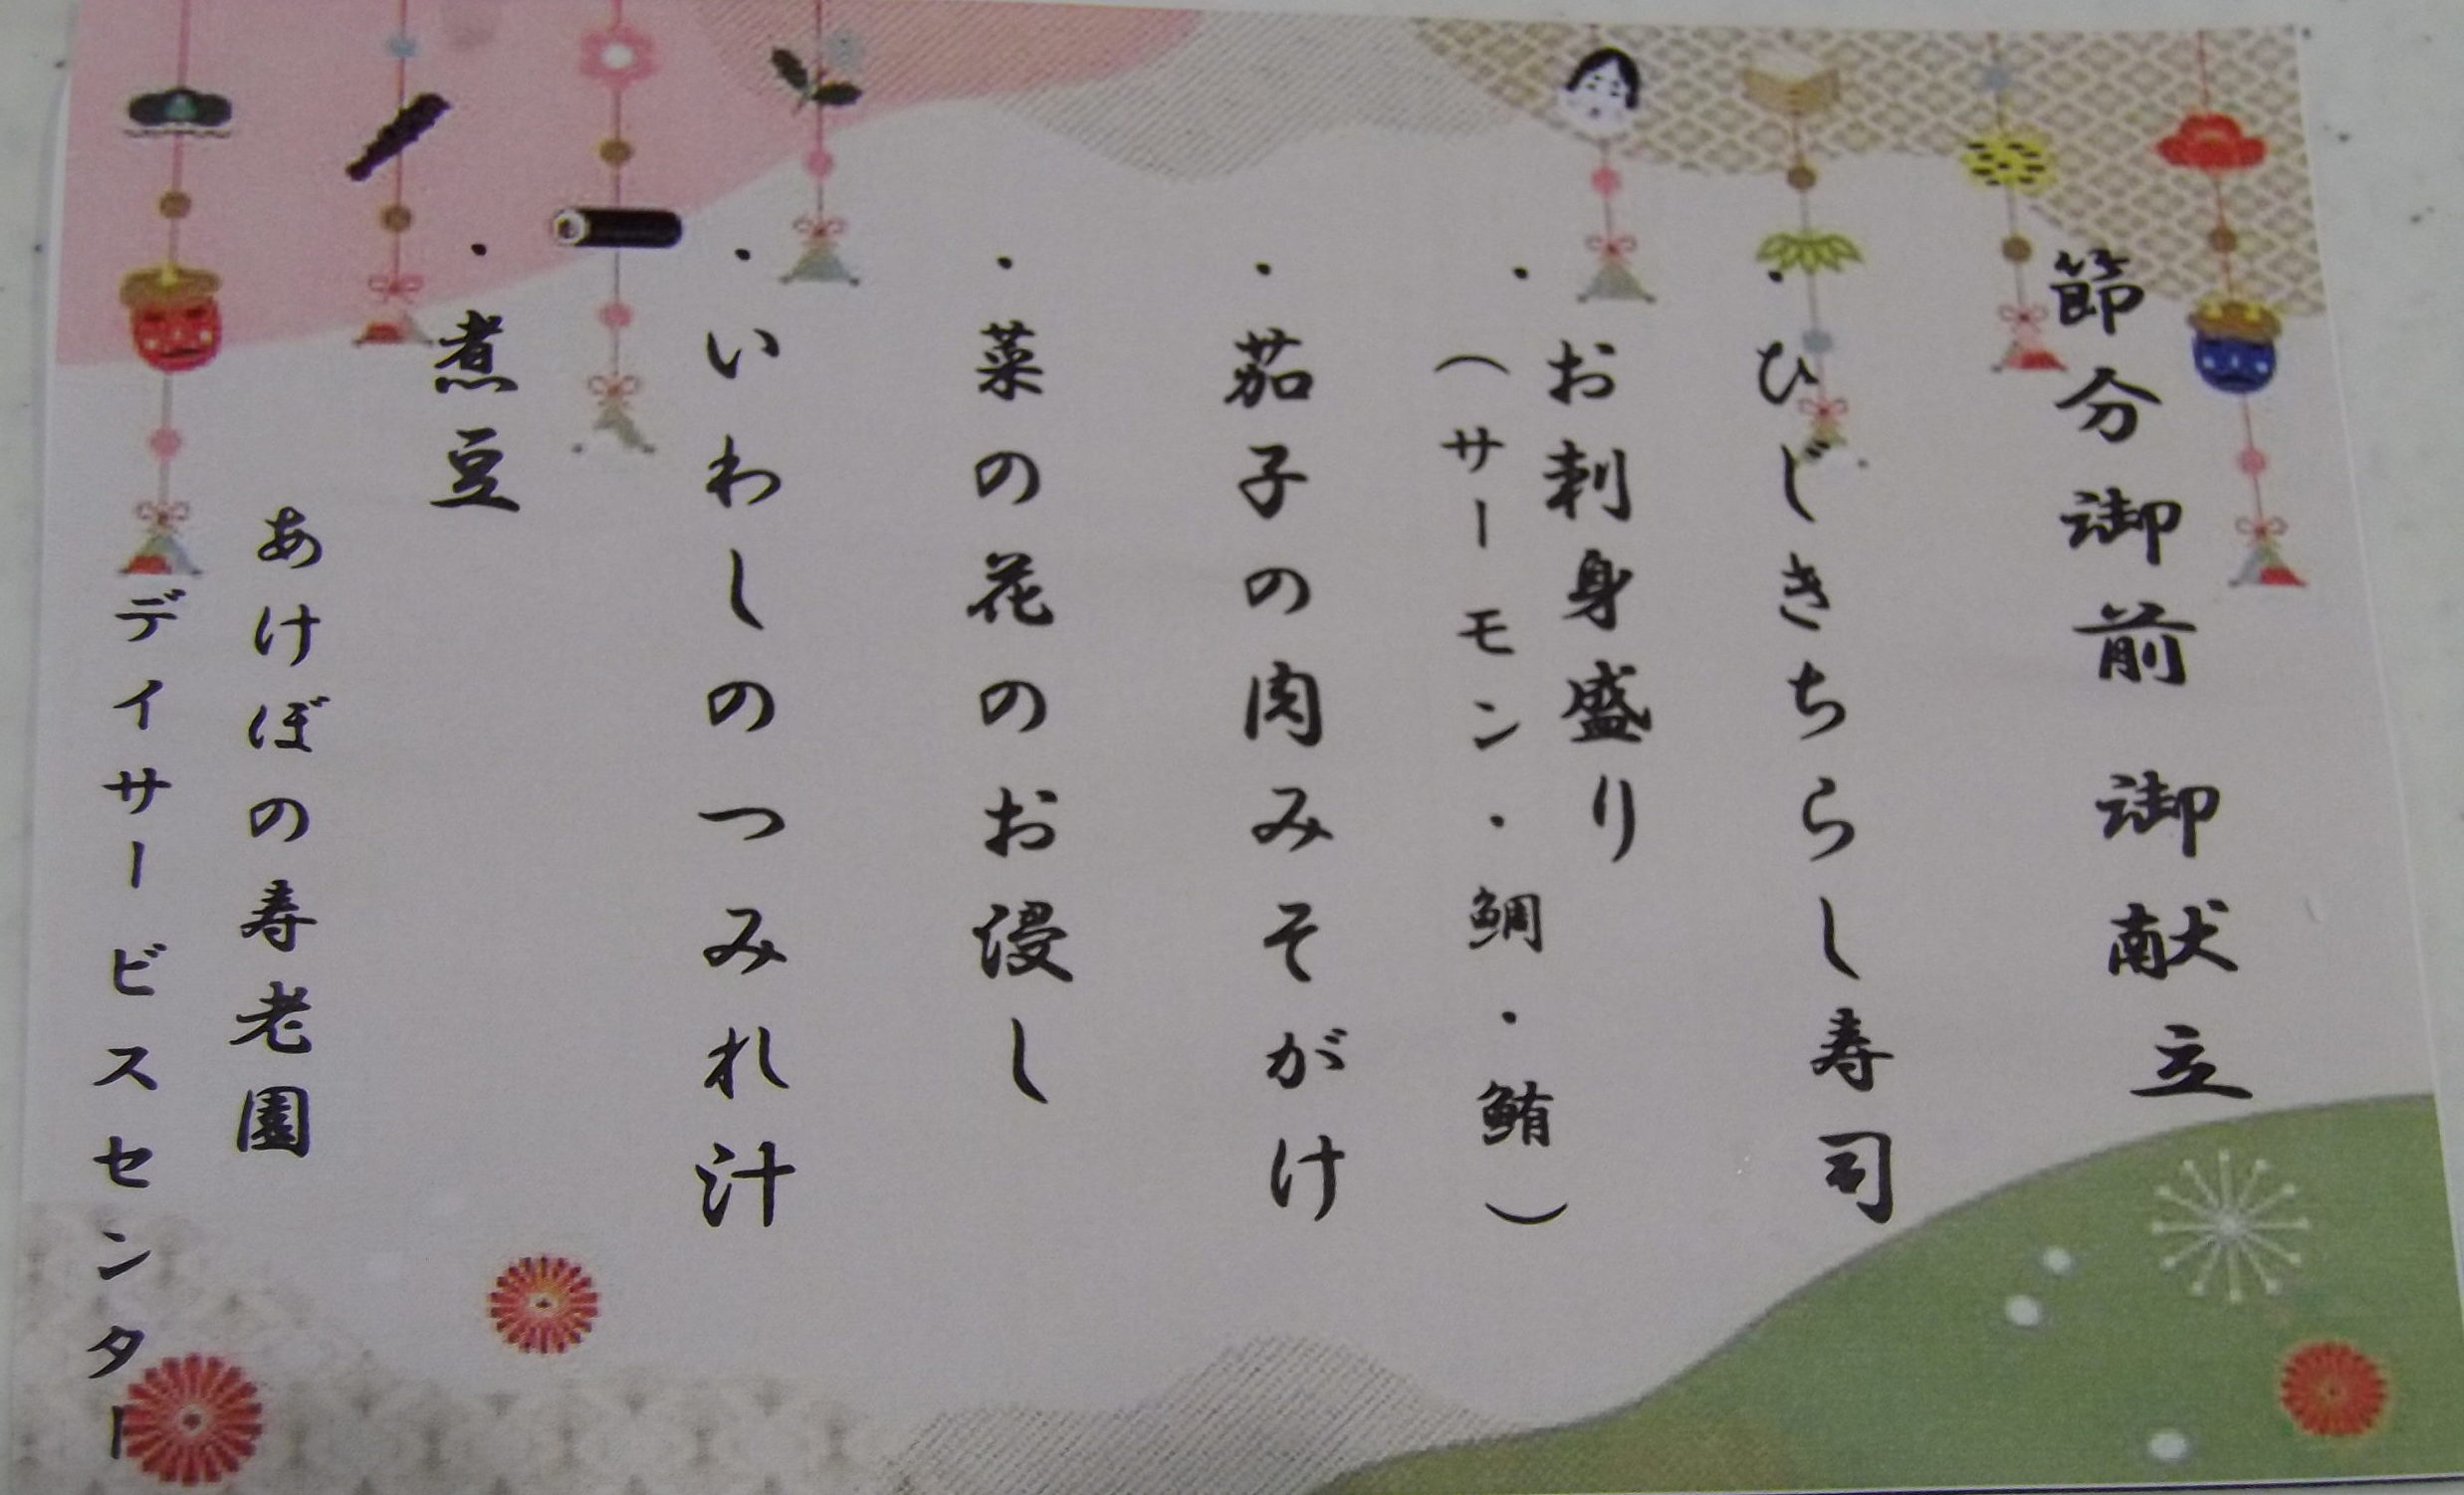 節分御前 御献立
・ひじきちらし寿司
・お刺身盛り
（サーモン・鯛・鮪）
・茄子の肉みそがけ
・菜の花のお浸し
・いわしのつみれ汁
・煮豆
あけぼの寿老園
デイサービスセンター